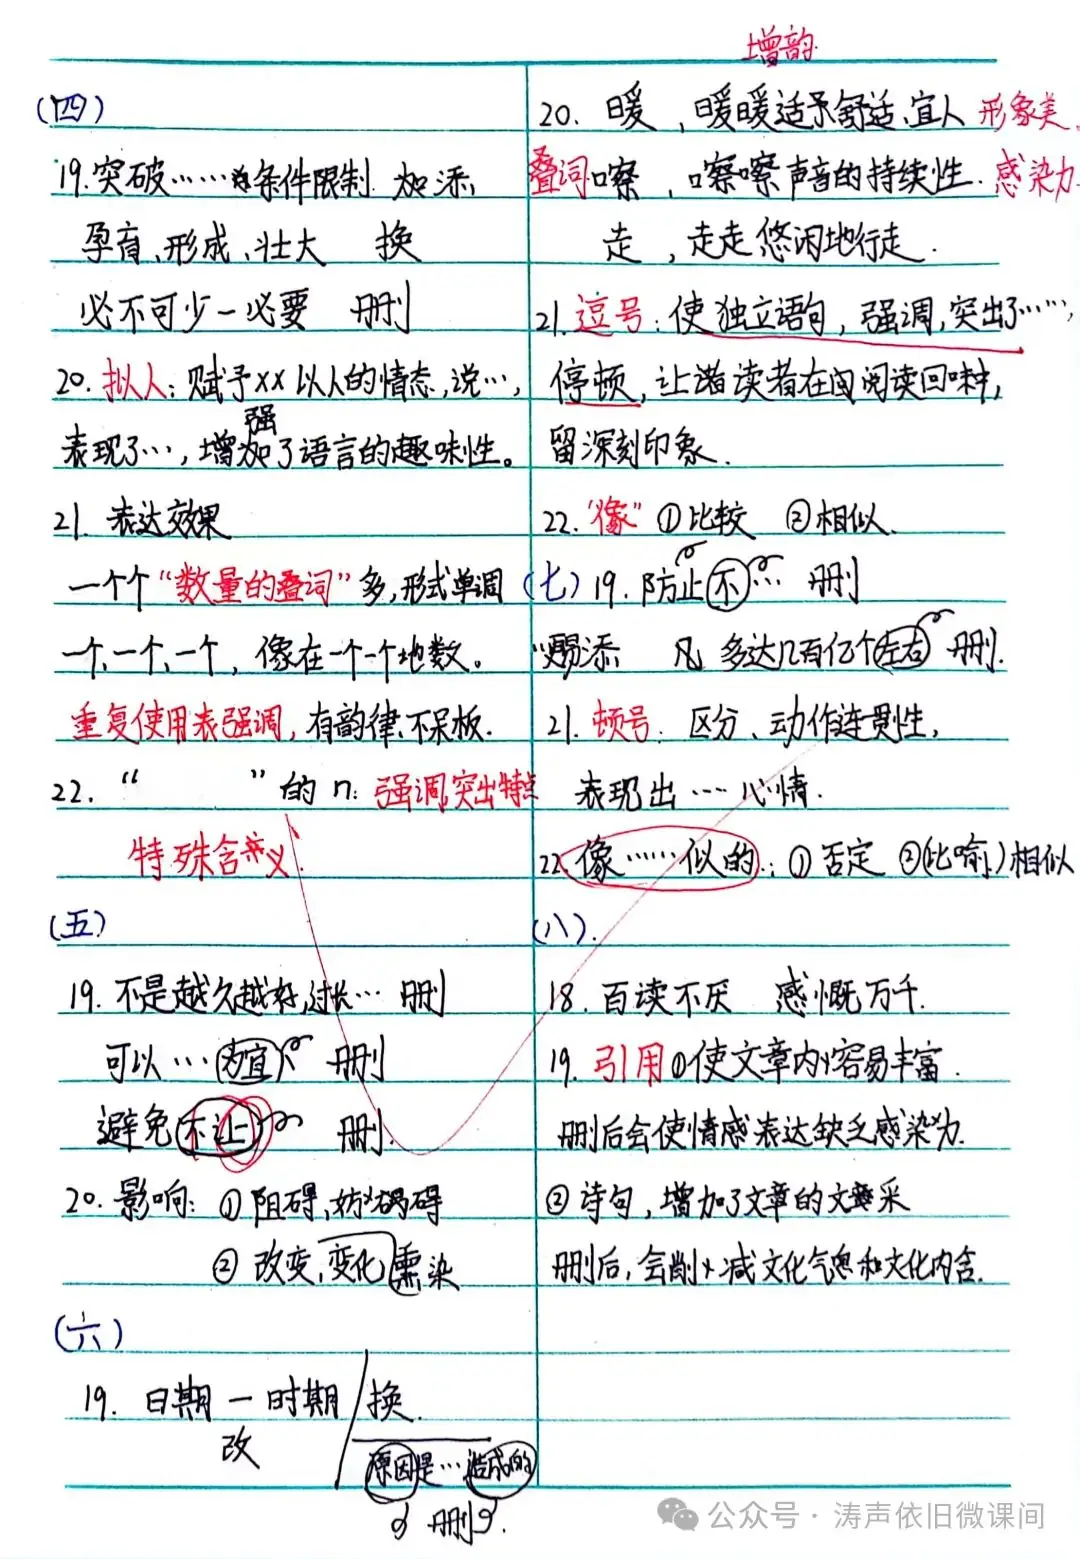 (四)
19.突破……为条件限制 加添
孕育、形成、壮大 换
必不可少一必要 删
20.拟人:赋予xx以人的情态,说…,
表现了…,增加了语言的趣味性。
强
21.表达效果
一个个“数量的叠词”多,形式单调
一个、一个、一个,像在一个一个地数。
重复使用表强调,有韵律、不呆板.
22.“ ”的n:强调,突出特点
特殊含义.
(五)
19.不是越久越好,过长… 删
可以…为宜 删
避免不让 删.
20.影响:①阻碍、妨碍
②改变、变化 熏染
(六)
19.日期一时期 换.
改
原因是…造成的
删.
增韵
20.暖,暖暖适予舒适、宜人 形象美.
叠词 嚓,嚓嚓声音的持续性. 感染力
走,走走悠闲地行走.
21.逗号:使独立语句,强调,突出了……,
停顿,让读者在阅读回味,
留深刻印象.
22.“像”①比较 ②相似.
(七)19.防止不… 删
赐添 凡 多达几百亿个左右 删.
21.顿号:区分、动作连贯性,
表现出…心情.
22.像……似的:①否定 ②(比喻)相似
(八).
18.百读不厌 感慨万千.
19.引用①使文章内容易丰富.
删后会使情感表达缺乏感染力.
②诗句,增加了文章的文采
删后,会削减文化气息和文化内含.
公众号·涛声依旧微课间